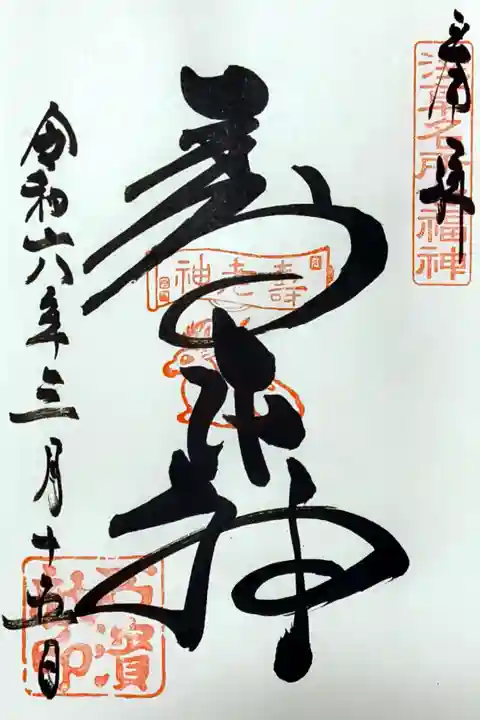 奉拝
浅草名所七福神
寿老神
壽老神
令和六年三月十五日
石濱
社印